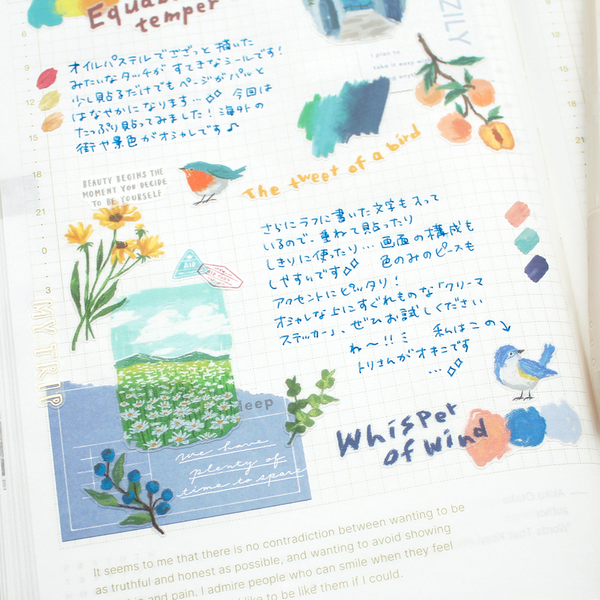 Equab
temper
ZILY
I plan to
take it easy
オイルパステルでござっと描いた
みたいなタッチがすてきなシールです!
少し貼るだけでもページがパッと
はなやかになります…✧✧ 今回は
たっぷり貼ってみました! 海外の
街や景色がオシャレです♪
6
9
12
15
18
21
0
3
BEAUTY BEGINS THE
MOMENT YOU DECIDE
TO BE YOURSELF
The tweet of a bird
さらにラフに書いた文字も入って
いるので、重ねて貼ったり
しきりに使ったり… 画面の構成も
しやすいです✧✧ 色のみのピースも
アクセントにピッタリ!
オシャレな上にすぐれものな「クリーマ
ステッカー」、ぜひお試しください
ね〜!!ミ 私はこの↘
トリさんがオキニです
…✧✧
AIR
MY TRIP
deep
We have
plenty of
time to spare
Whisper
of Wind
It seems to me that there is no contradiction between wanting to be
as truthful and honest as possible, and wanting to avoid showing
and pain. I admire people who can smile when they feel
to be like them if I could.